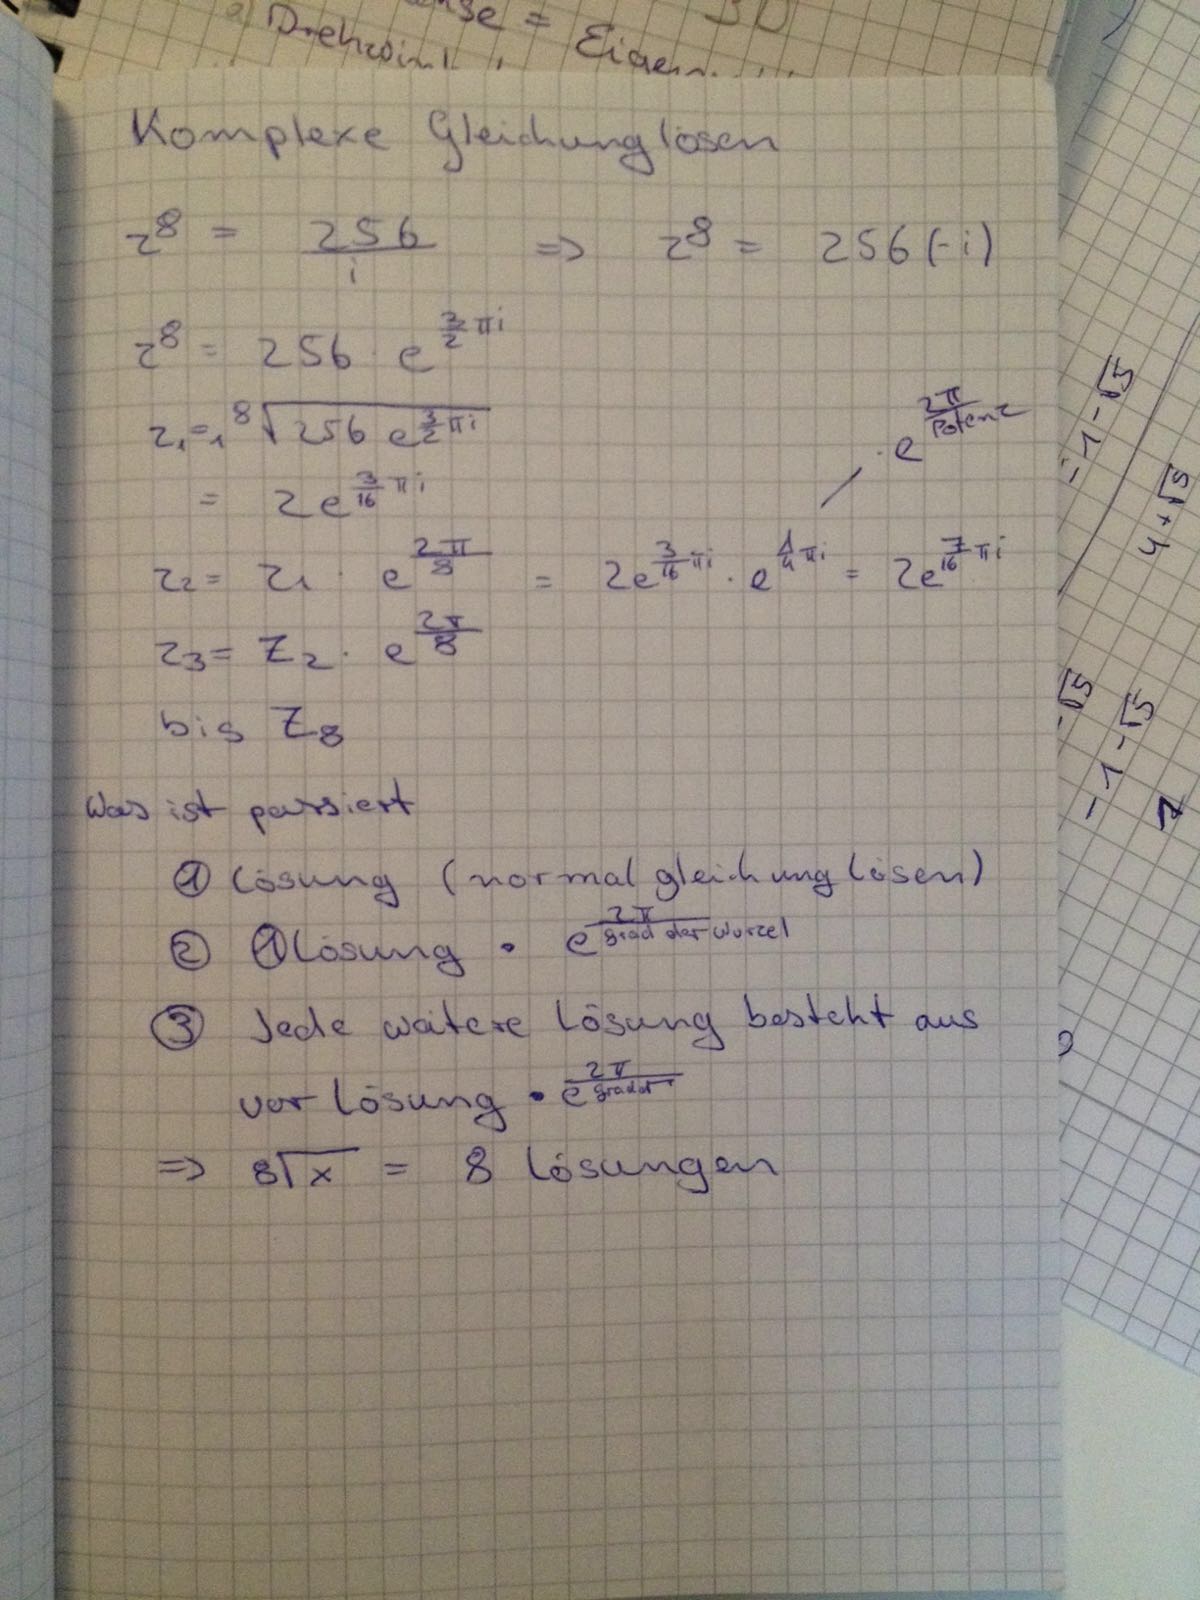 ense = 3D
a) Drehwink
Eigen
Komplexe Gleichung lösen
z⁸ = 256/i => z⁸ = 256(-i)
z⁸ = 256 · e^(3/2 πi)
z₁ = ⁸√(256 e^(3/2 πi))
· e^(2π/Potenz)
= 2e^(3/16 πi)
z₂ = z₁ · e^(2π/8) = 2e^(3/16 πi) · e^(1/4 πi) = 2e^(7/16 πi)
z₃ = z₂ · e^(2π/8)
bis z₈
Was ist passiert
① Lösung (normal gleichung lösen)
② ① Lösung · e^(2π/grad der wurzel)
③ Jede weitere Lösung besteht aus
vor Lösung · e^(2π/grad)
=> 8√x = 8 Lösungen
-1-√5
4+√5
-√5
-1-√5